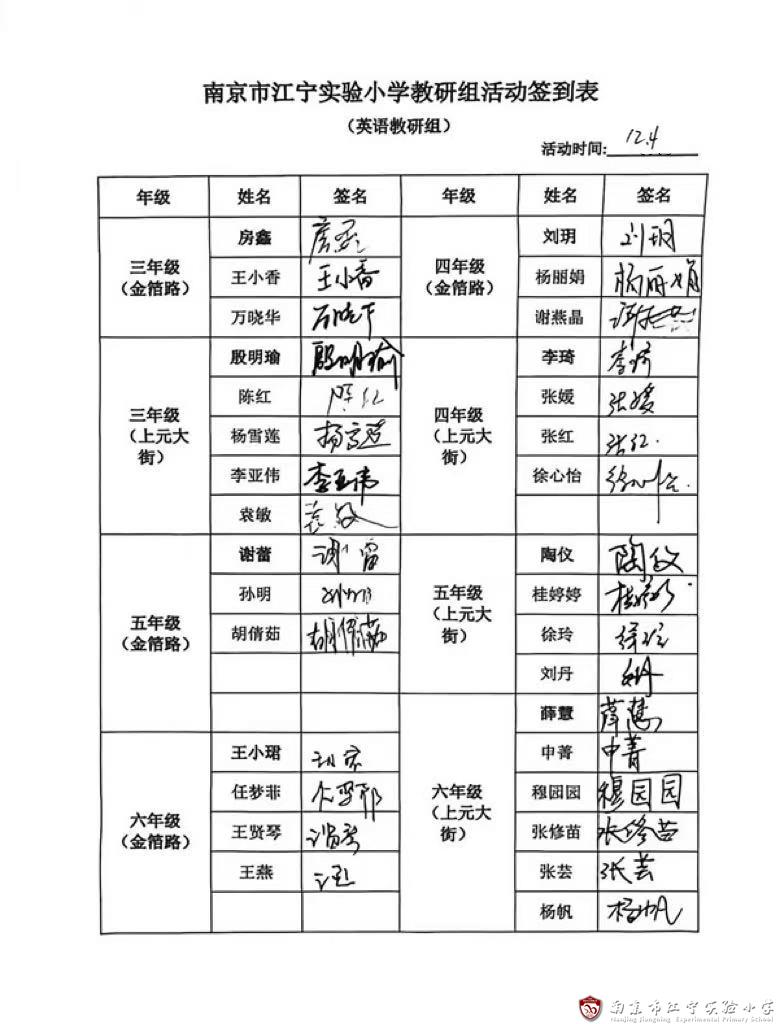 南京市江宁实验小学教研组活动签到表
（英语教研组）
活动时间: 12.4
年级 姓名 签名 年级 姓名 签名
三年级（金箔路） 房鑫 四年级（金箔路） 刘玥 刘玥
王小香 王小香 杨丽娟 杨丽娟
万晓华 谢燕晶
三年级（上元大街） 殷明瑜 殷明瑜 四年级（上元大街） 李琦 李琦
陈红 陈红 张媛 张媛
杨雪莲 杨雪莲 张红 张红.
李亚伟 李亚伟 徐心怡
袁敏 袁敏
五年级（金箔路） 谢蕾 谢蕾 五年级（上元大街） 陶仪 陶仪
孙明 孙明 桂婷婷 桂婷婷
胡倩茹 胡倩茹 徐玲 徐玲
刘丹
六年级（上元大街） 薛慧 薛慧
六年级（金箔路） 王小珺 申菁 申菁
任梦菲 穆园园 穆园园
王贤琴 张修苗 张修苗
王燕 张芸 张芸
杨帆 杨帆
南京市江宁实验小学
Nanjing Jiangning Experimental Primary School